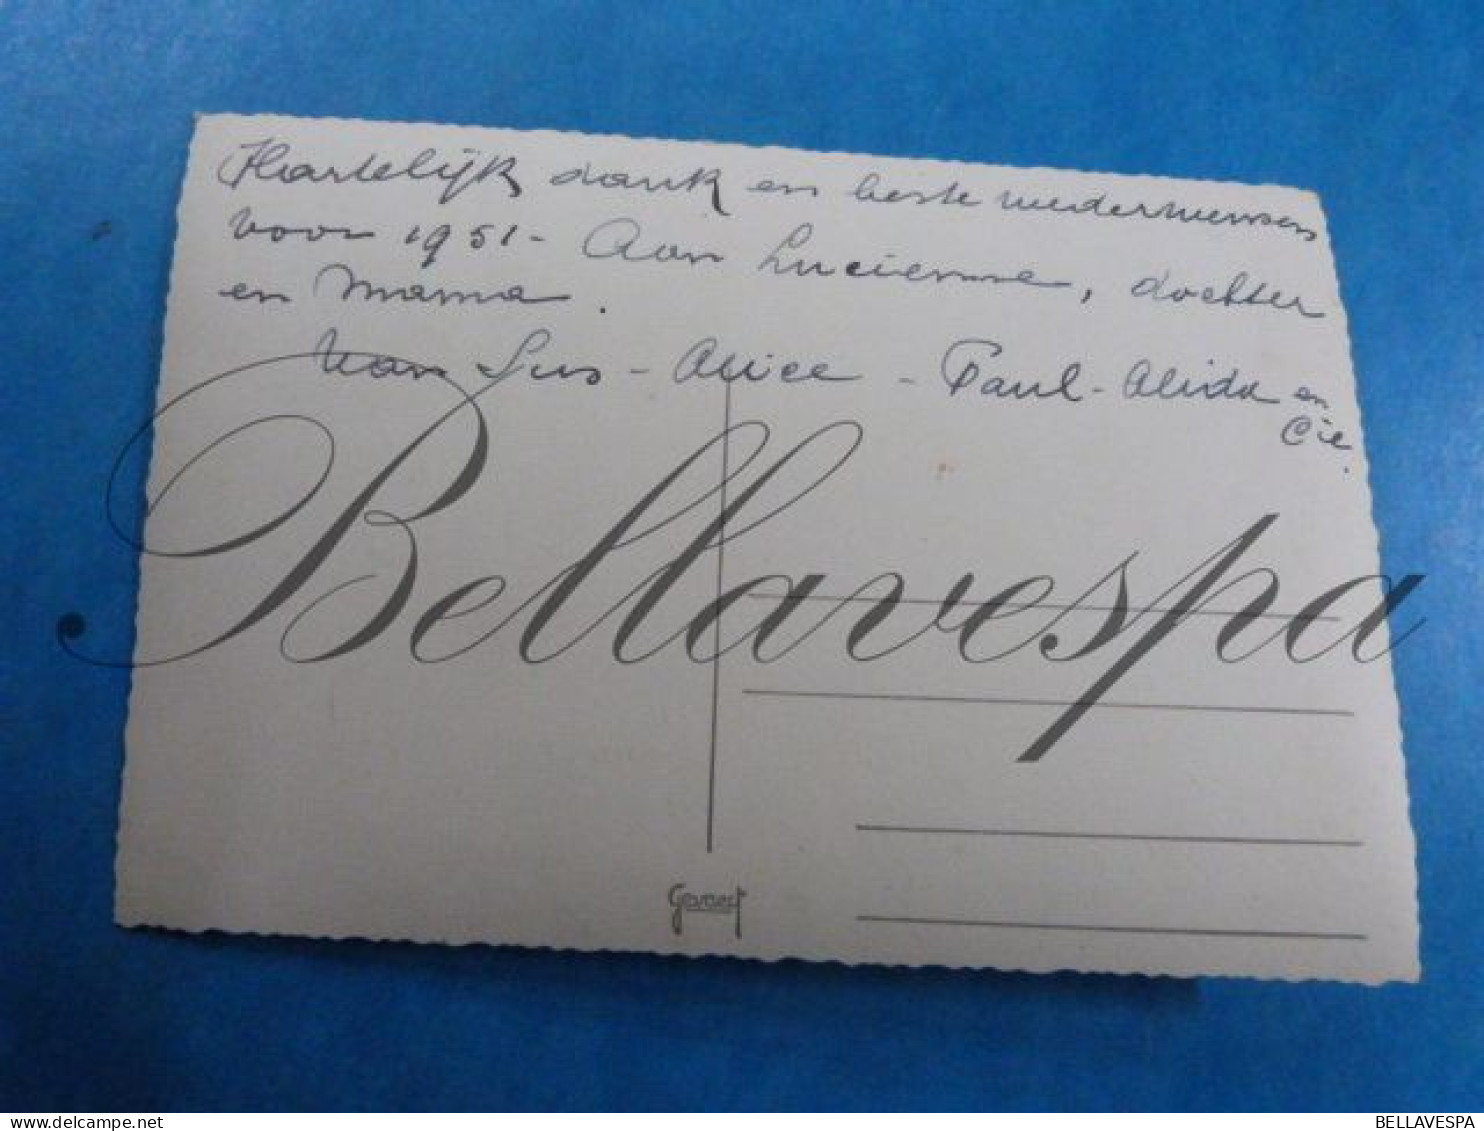 Hartelijk dank en beste wederwensen
voor 1951 - Aan Lucienne, dochter
en Mama.
Van Sus - Alice - Paul - Alida en
Cie.
Bellavespa
Gevaert
BELLAVESPA